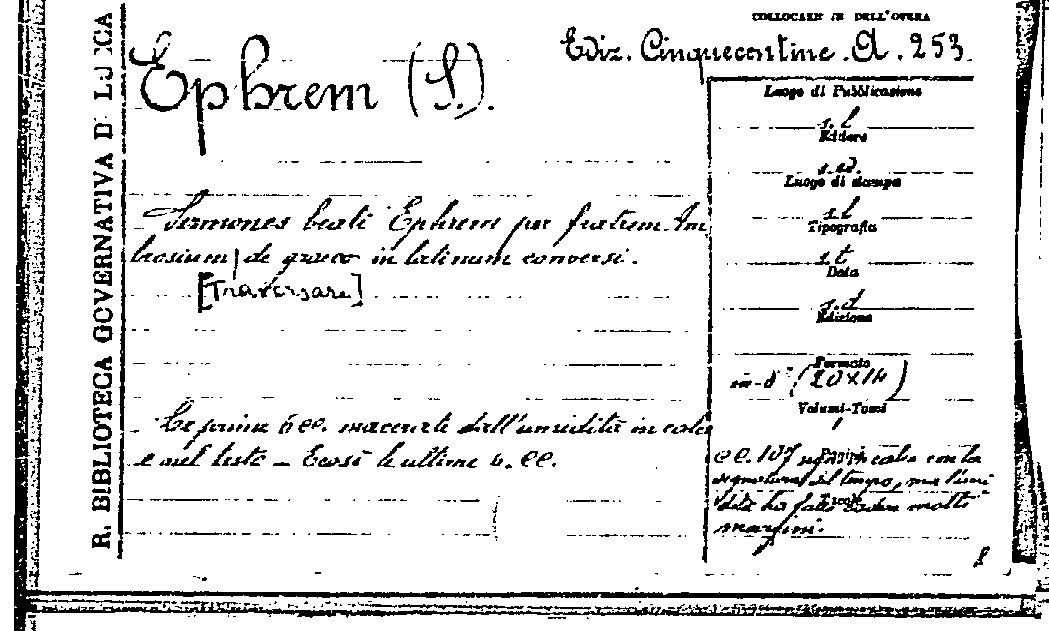 R. BIBLIOTECA GOVERNATIVA DI LUCCA
COLLOCAZIONE DELL'OPERA
Ediz. Cinquecentine. A. 253.
Ephrem (S.).
Sermones beati Ephrem per fratrem Am
brosium de graeco in latinum conversi.
[Traversare]
Le prime 6 cc. macerate dall'umidità in calce
e nel testo - Ecosì le ultime 4. cc.
Luogo di Pubblicazione
s. l
Editore
s. ed.
Luogo di stampa
s. l
Tipografia
s. t
Data
s. d
Edizione
Formato
in-8° (20x14)
Volumi-Tomi
1
Pagine
cc. 107 con la
segnatura del tempo, ma l'umi
dità ha fatto cadere molti
margini.